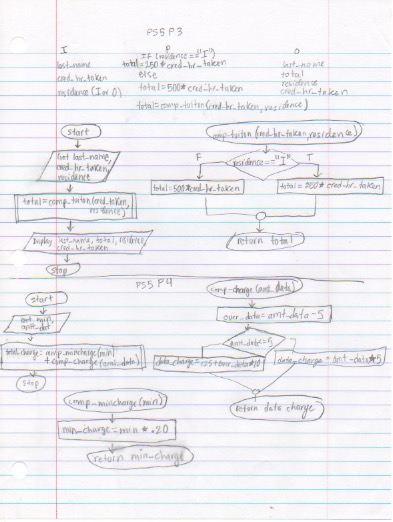 PS5 P3
I P O
last_name
cred_hr_taken
residence (I or O)
IF (residence =="I")
total=250*cred_hr_taken
else
total=500*cred_hr_taken
total=comp_tuiton(cred_hr_taken, residence)
last_name
total
residence
cred_hr_taken
start
Get last_name,
cred_hr_taken,
residence
total=comp_tuiton(cred_taken,
residence)
Display last_name, total, residence
cred_hr_taken
stop
comp_tuiton(cred_hr_taken, residence)
F residence=="I" T
total=500*cred_hr_taken
total=250*cred_hr_taken
return total
PS5 P4
start
get min,
amt_dat
total_charge=comp_mincharge(min)
+comp_charge(amt_data)
stop
comp_charge(amt_data)
over_data=amt_data-5
amt_data≤5
data_charge= +over_data*10
data_charge=amt-data*5
return data charge
comp_mincharge(min)
min_charge=min*.20
return min_charge